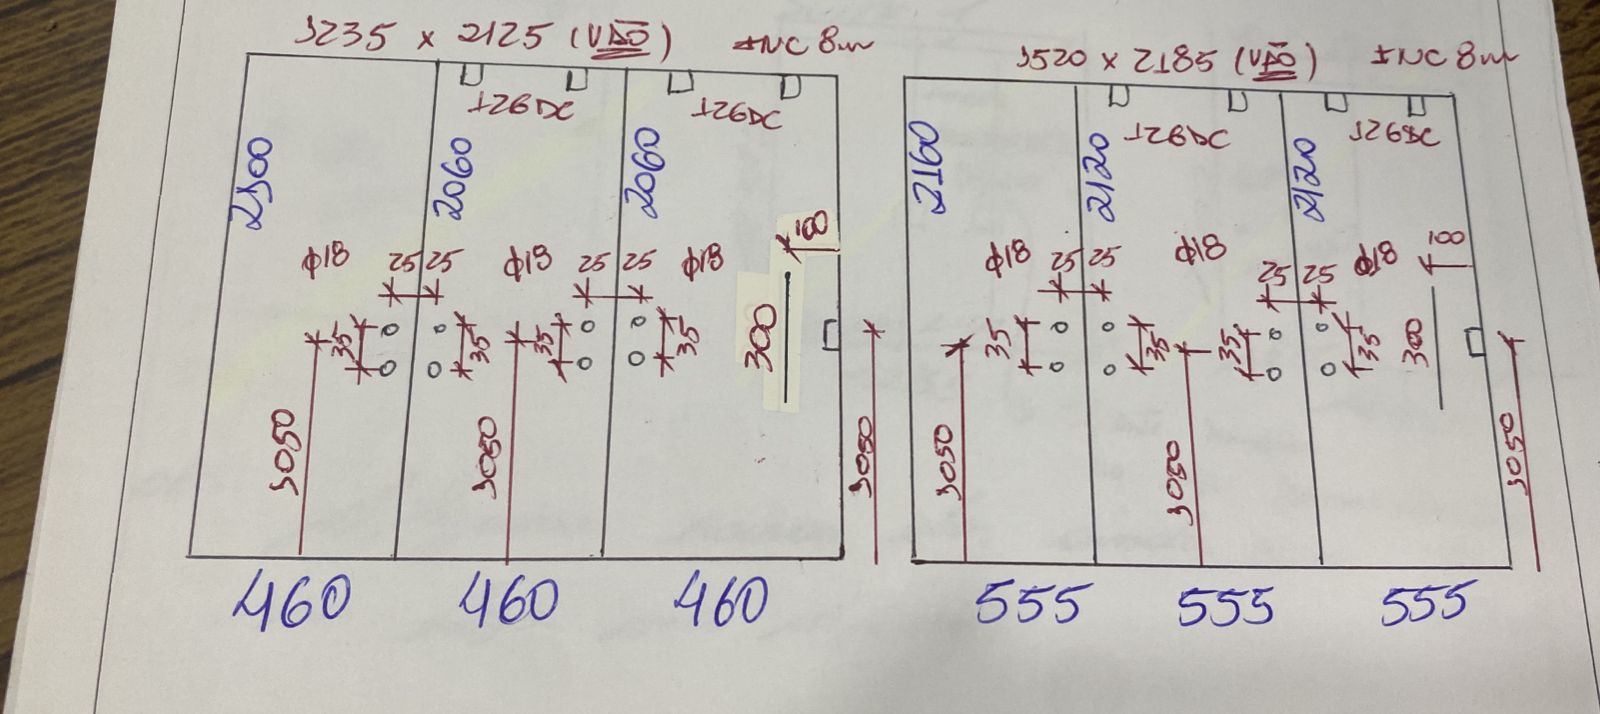 1235 x 2125 (VÃO) INC 8m
2100
2060
2060
Φ18
25
25
Φ18
25
25
Φ18
100
35
35
35
35
300
1050
1050
1050
460
460
460
1520 x 2185 (VÃO) INC 8m
2160
2120
2120
Φ18
25
25
Φ18
25
25
Φ18
100
35
35
35
35
300
1050
1050
1050
555
555
555